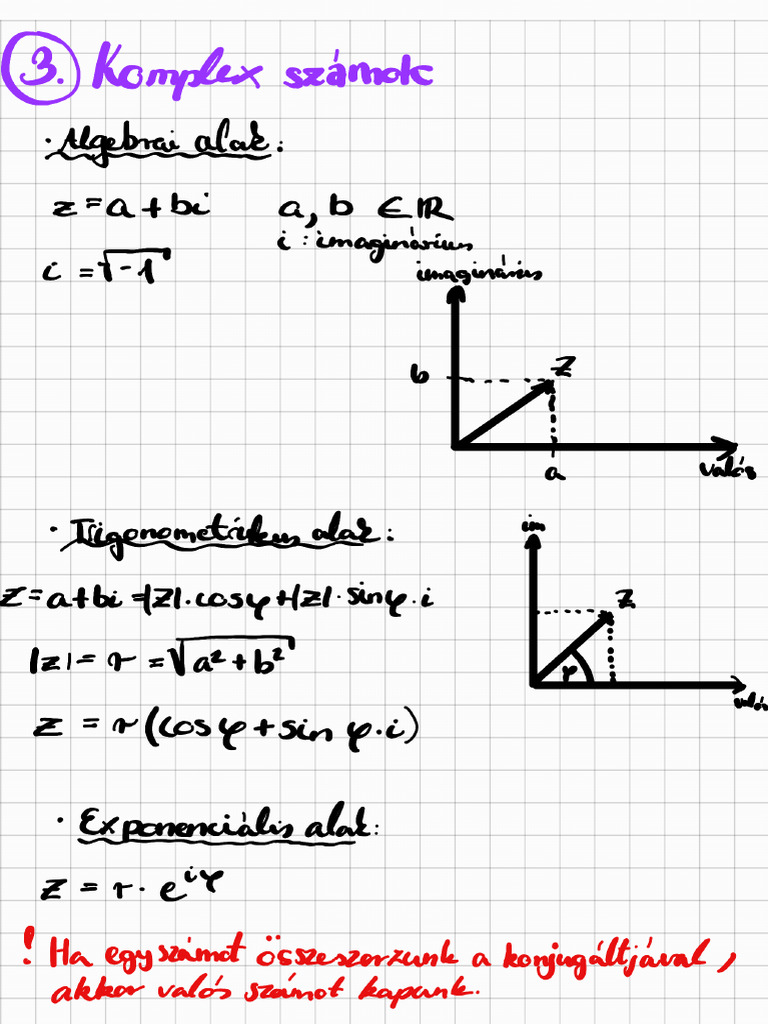 3. Komplex számok
· Algebrai alak:
z = a + bi   a, b ∈ ℝ
i : imaginárius
i = √-1
imaginárius
b
z
a
valós
· Trigonometrikus alak:
im
z = a+bi = |z|·cosφ+|z|·sinφ·i
z
|z| = r = √a²+b²
φ
valós
z = r(cosφ+sin φ·i)
· Exponenciális alak:
z = r· e^iφ
! Ha egy számot összeszorzunk a konjugáltjával,
akkor valós számot kapunk.